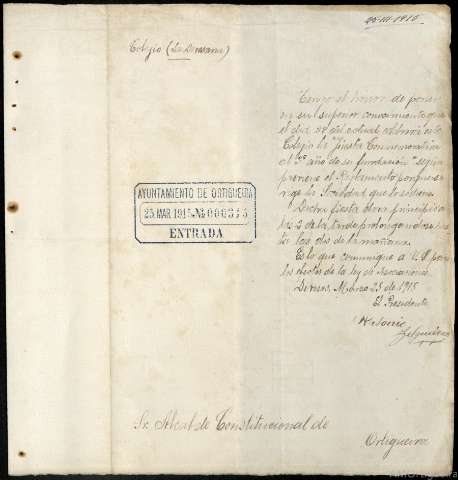 25-III-1915.
Colegio (
Tengo el honor de poner
en su superior conocimiento que
el día 28 del actual celebrará este
Colegio la "fiesta Conmemorativa
al 3er año de su fundación" según
previene el Reglamento porque se
rige la Sociedad que lo sostiene
Dicha fiesta dará principio a
las 2 de la tarde prolongandose has
ta las dos de la mañana.
Es lo que comunico a V.S. para
los efectos de la ley de Asociaciones.
Marzo 25 de 1915
El Presidente
AYUNTAMIENTO DE ORTIGUEIRA
25 MAR 1915 No 000375
ENTRADA
Sr. Alcalde Constitucional de
Ortigueira